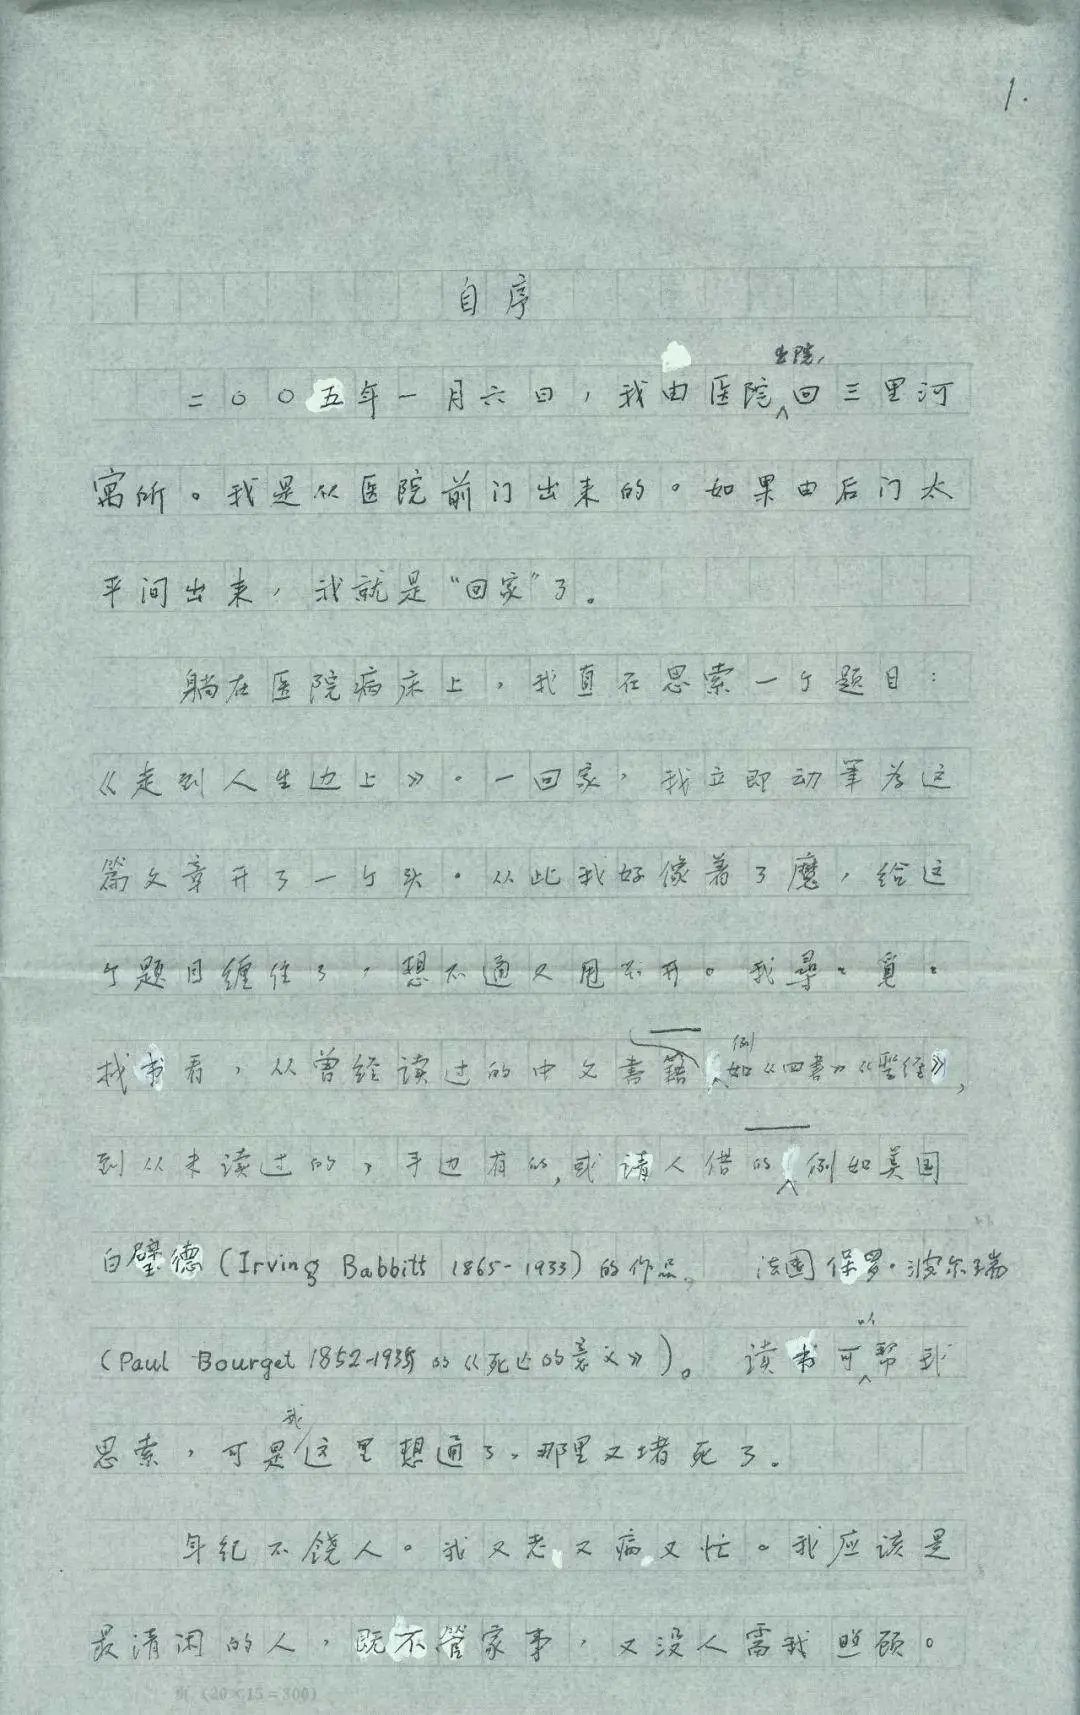 1.
自序
二〇〇五年一月六日，我由医院出院，回三里河
寓所。我是从医院前门出来的。如果由后门太
平间出来，我就是“回家”了。
躺在医院病床上，我直在思索一个题目：
《走到人生边上》。一回家，我立即动笔为这
篇文章开了一个头。从此我好像着了魔，给这
个题目缠住了，想不通又甩不开。我尋々覓々
找书看，从曾经读过的中文書籍例如《四書》《聖经》，
到从未读过的，手边有的，或请人借的例如美国
白璧德（Irving Babbitt 1865-1933）的作品、法国保罗·波尔瑞
（Paul Bourget 1852-1935 的《死亡的意义》）。读书可以帮我
思索，可是我这里想通了，那里又堵死了。
年纪不饶人。我又老、又病、又忙。我应该是
最清闲的人，既不管家事，又没人需我照顾。
页（20×15=300）